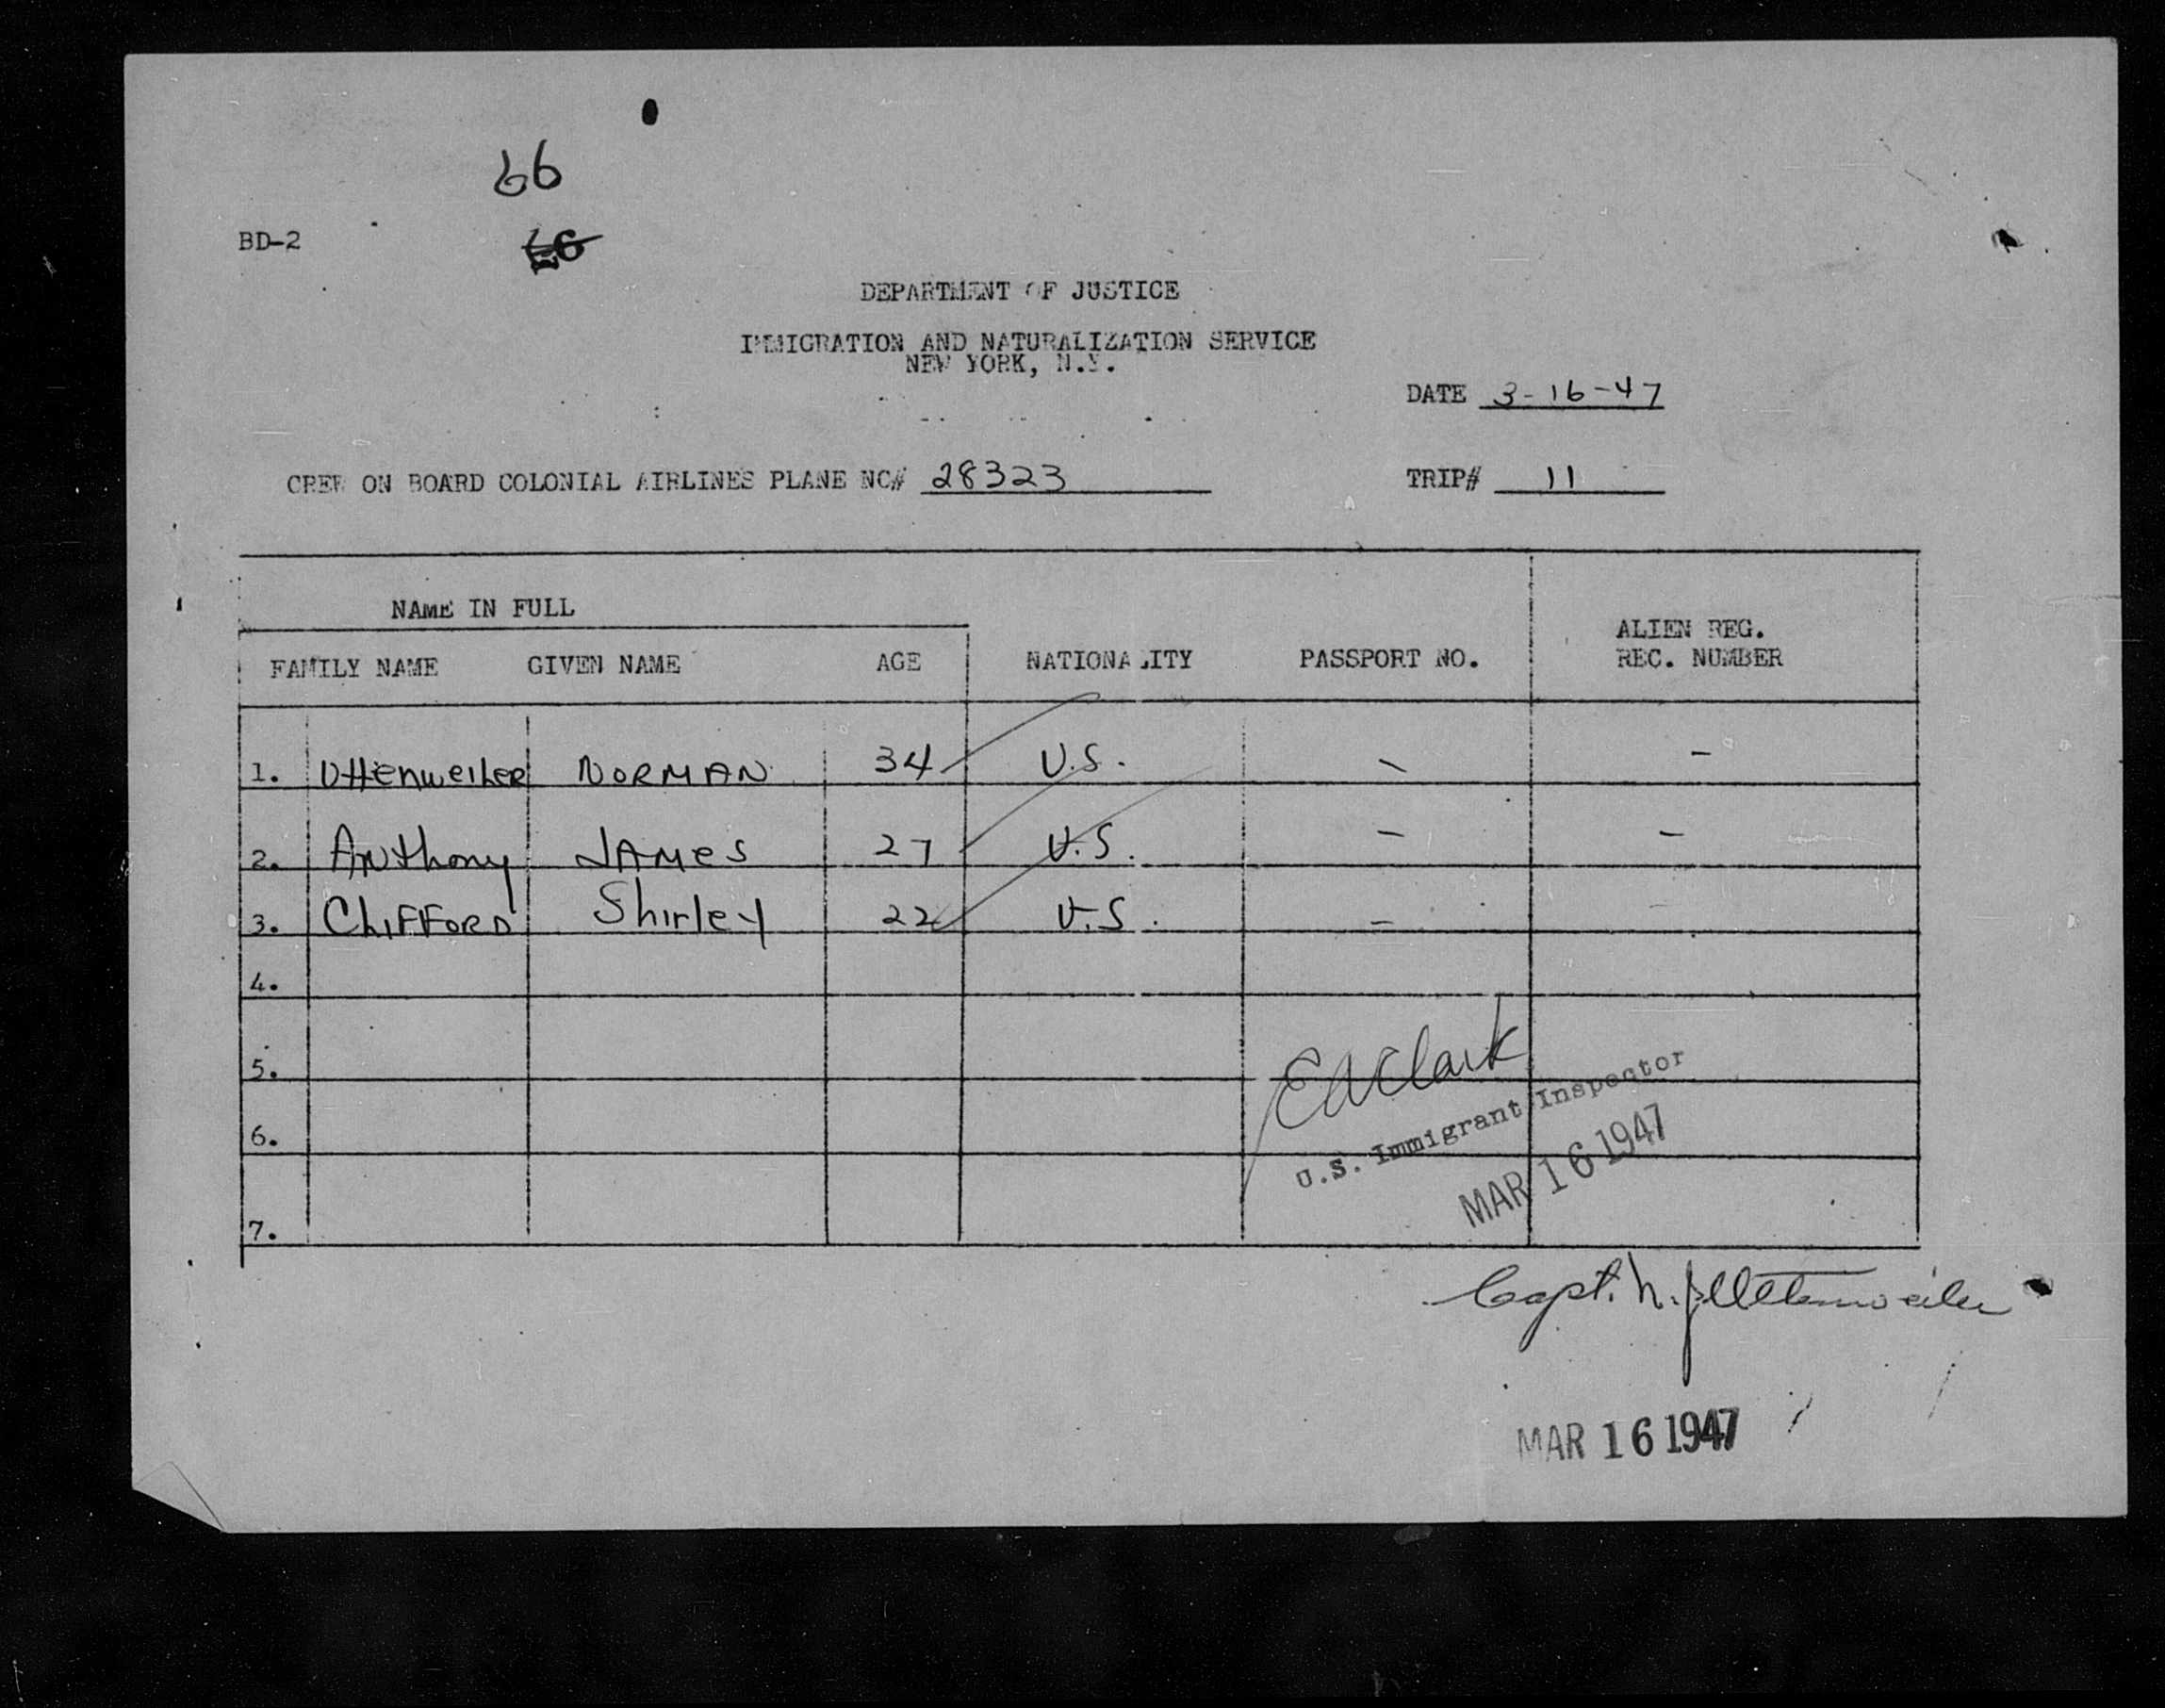 66
BD-2 66
DEPARTMENT OF JUSTICE
IMMIGRATION AND NATURALIZATION SERVICE
NEW YORK, N.Y.
DATE 3-16-47
CREW ON BOARD COLONIAL AIRLINES PLANE NC# 28323 TRIP# 11
NAME IN FULL
ALIEN REG.
FAMILY NAME GIVEN NAME AGE NATIONALITY PASSPORT NO. REC. NUMBER
1. Uttenweiler NORMAN 34 U.S. - -
2. Anthony JAMES 27 U.S. - -
3. CLIFFORD Shirley 22 U.S. -
4.
5.
6.
7.
E A Clark
U.S. Immigrant Inspector
MAR 16 1947
Capt. N. J. Uttenweiler
MAR 16 1947